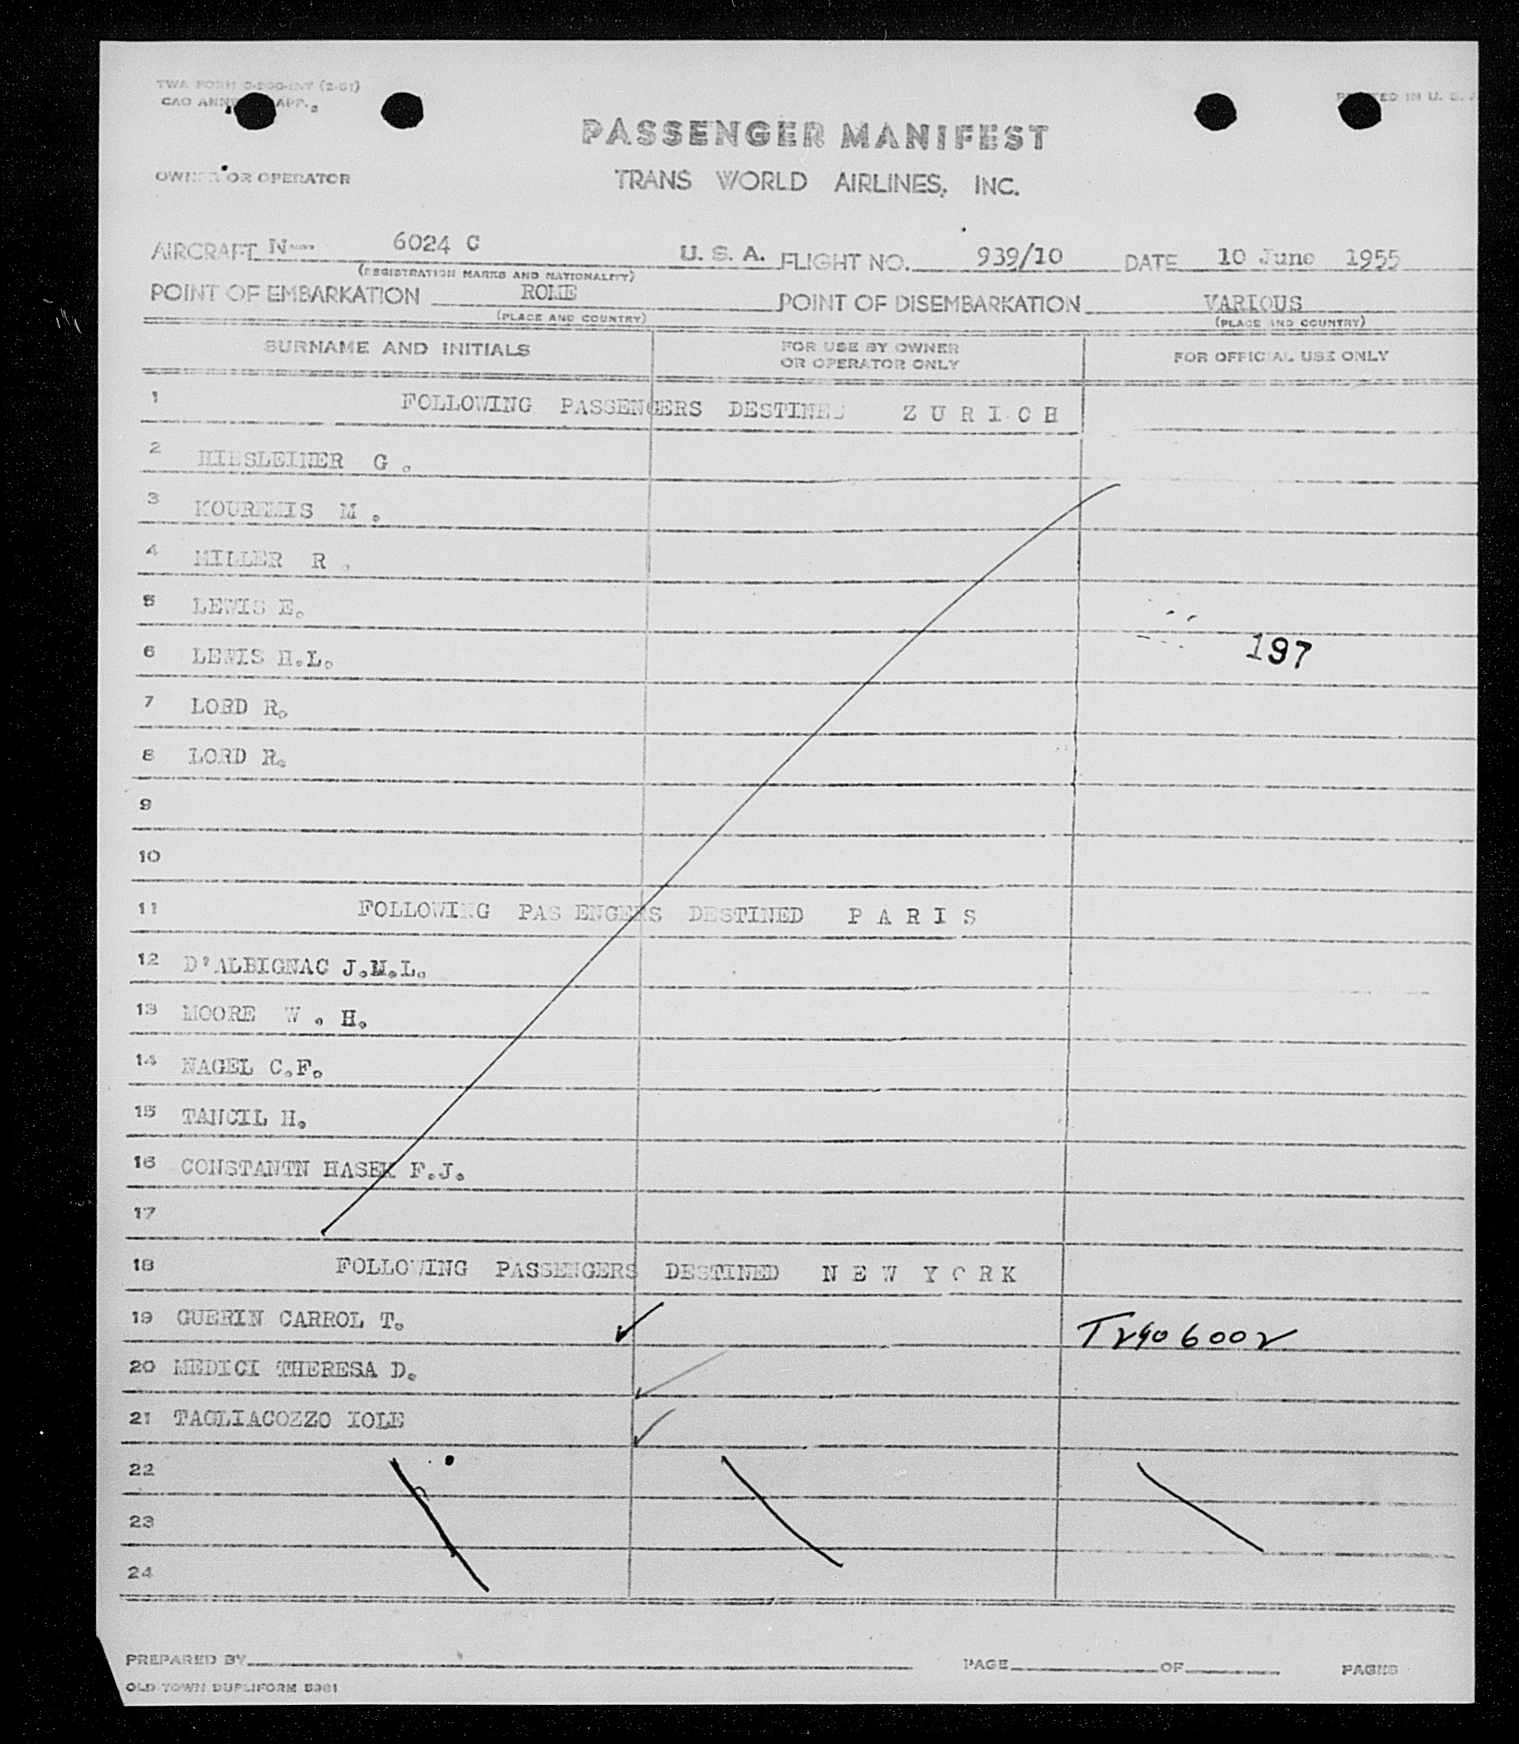 TWA FORM
CAO ANNE APP.
PRINTED IN U. S. A.
PASSENGER MANIFEST
OWNER OR OPERATOR
TRANS WORLD AIRLINES, INC.
AIRCRAFT N--- 6024 C U. S. A. FLIGHT NO. 939/10 DATE 10 June 1955
(REGISTRATION MARKS AND NATIONALITY)
POINT OF EMBARKATION ROME POINT OF DISEMBARKATION VARIOUS
(PLACE AND COUNTRY) (PLACE AND COUNTRY)
SURNAME AND INITIALS FOR USE BY OWNER OR OPERATOR ONLY FOR OFFICIAL USE ONLY
1 FOLLOWING PASSENGERS DESTINED Z U R I C H
2 G.
3 KOUREMIS M.
4 MILLER R.
5 LEWIS E.
6 LEWIS H.L. 197
7 LORD R.
8 LORD R.
9
10
11 FOLLOWING PAS ENGERS DESTINED P A R I S
12 D'ALBIGNAC J.M.L.
13 MOORE W. H.
14 NAGEL C.F.
15 TANCIL H.
16 CONSTANTN HASEK F.J.
17
18 FOLLOWING PASSENGERS DESTINED N E W Y O R K
19 GUERIN CARROL T. T2906002
20 MEDICI THERESA D.
21 TAGLIACOZZO IOLE
22
23
24
PREPARED BY PAGE OF PAGES
OLD TOWN DUPLIFORM